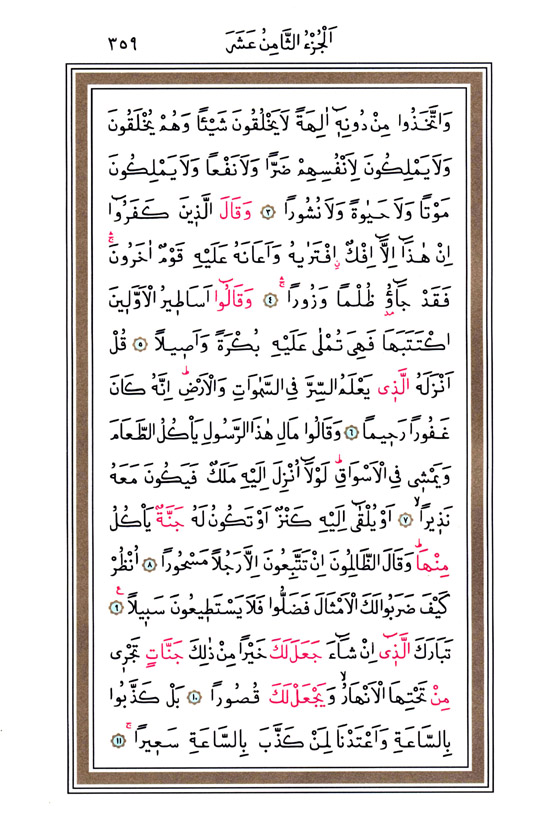 اَلْجُزْءُ الثَّامِنُ عَشَرَ ٣٥٩
وَاتَّخَذُوا مِنْ دُونِهٖٓ اٰلِهَةً لَا يَخْلُقُونَ شَيْـًٔا وَهُمْ يُخْلَقُونَ
وَلَا يَمْلِكُونَ لِاَنْفُسِهِمْ ضَرًّا وَلَا نَفْعًا وَلَا يَمْلِكُونَ
مَوْتًا وَلَا حَيٰوةً وَلَا نُشُورًا ﴿٣﴾ وَقَالَ الَّذٖينَ كَفَرُٓوا
اِنْ هٰذَٓا اِلَّٓا اِفْكٌۨ افْتَرٰيهُ وَاَعَانَهُ عَلَيْهِ قَوْمٌ اٰخَرُونَۚۛ
فَقَدْ جَٓاؤُ۫ ظُلْمًا وَزُورًاۚۛ ﴿٤﴾ وَقَالُٓوا اَسَاطٖيرُ الْاَوَّلٖينَ
اكْتَتَبَهَا فَهِيَ تُمْلٰى عَلَيْهِ بُكْرَةً وَاَصٖيلًا ﴿٥﴾ قُلْ
اَنْزَلَهُ الَّذٖى يَعْلَمُ السِّرَّ فِى السَّمٰوَاتِ وَالْاَرْضِۜ اِنَّهُ كَانَ
غَفُورًا رَحٖيمًا ﴿٦﴾ وَقَالُوا مَالِ هٰذَا الرَّسُولِ يَاْكُلُ الطَّعَامَ
وَيَمْشٖى فِى الْاَسْوَاقِۜ لَوْلَٓا اُنْزِلَ اِلَيْهِ مَلَكٌ فَيَكُونَ مَعَهُ
نَذٖيرًاۙ ﴿٧﴾ اَوْ يُلْقٰٓى اِلَيْهِ كَنْزٌ اَوْ تَكُونُ لَهُ جَنَّةٌ يَاْكُلُ
مِنْهَاۜ وَقَالَ الظَّالِمُونَ اِنْ تَتَّبِعُونَ اِلَّا رَجُلًا مَسْحُورًا ﴿٨﴾ اُنْظُرْ
كَيْفَ ضَرَبُوا لَكَ الْاَمْثَالَ فَضَلُّوا فَلَا يَسْتَطٖيعُونَ سَبٖيلًا۟ ﴿٩﴾
تَبَارَكَ الَّذٖٓى اِنْ شَٓاءَ جَعَلَ لَكَ خَيْرًا مِنْ ذٰلِكَ جَنَّاتٍ تَجْرٖى
مِنْ تَحْتِهَا الْاَنْهَارُۙ وَيَجْعَلْ لَكَ قُصُورًا ﴿١٠﴾ بَلْ كَذَّبُوا
بِالسَّاعَةِ وَاَعْتَدْنَا لِمَنْ كَذَّبَ بِالسَّاعَةِ سَعٖيرًاۚ ﴿١١﴾